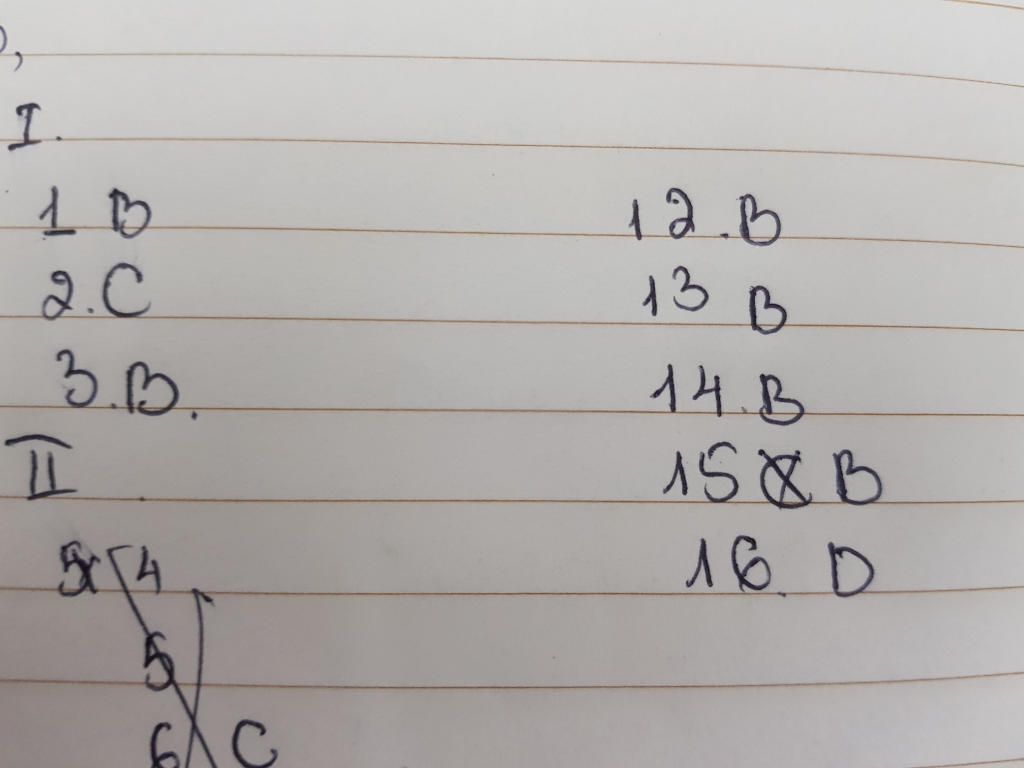 I.
1 B
2. C
3. B.
II
4
5
6 C
12. B
13 B
14. B
15 B
16. D